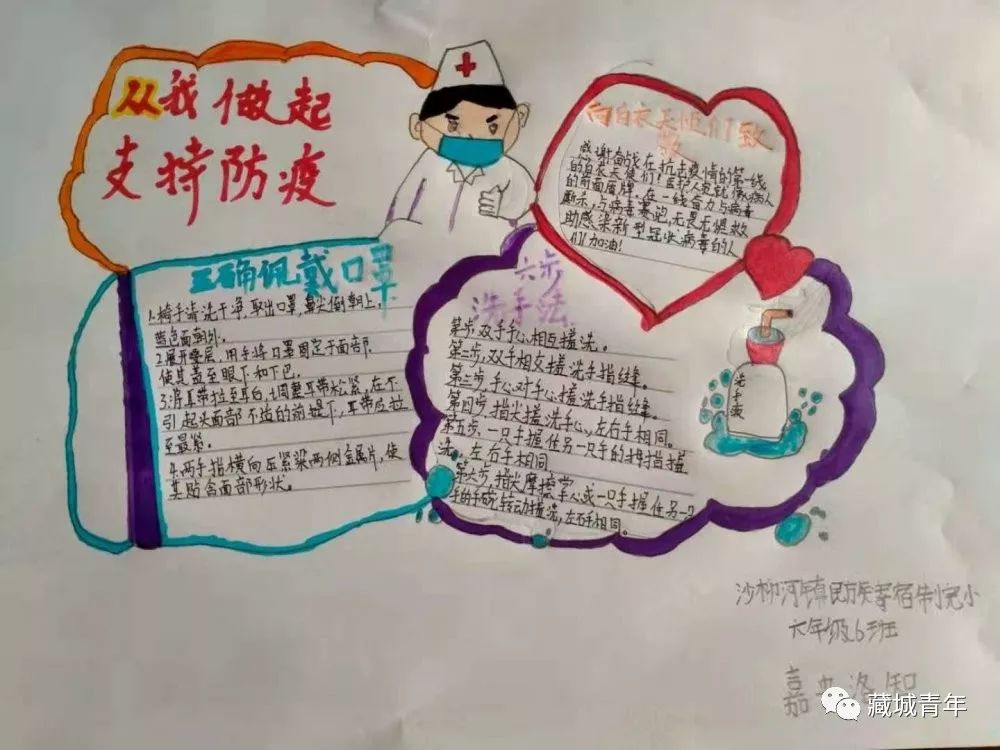 从我做起
支持防疫
向白衣天使们致
敬
感谢奋战在抗击疫情的第一线
的白衣天使们！医护人员就像病人
的前面盾牌，在一线奋力与病毒
厮杀，与病毒赛跑，无畏无惧救
助感染新型冠状病毒的人
们！加油！
正确佩戴口罩
1.将手清洗干净，取出口罩，鼻尖倒朝上，
蓝色面朝外。
2.展开叠层，用手将口罩固定于面部，
使其盖至眼下和下巴。
3.将耳带拉至耳后，调整耳带松紧，在不
引起头面部不适的前提下，耳带应拉
至最紧。
4.两手指横向压紧梁两侧金属片，使
其贴合面部形状。
六步
洗手法
第一步，双手手心相互搓洗。
第二步，双手相交搓洗手指缝。
第三步，手心对手心搓洗手指缝。
第四步，指尖搓洗手心，左右手相同。
第五步，一只手握住另一只手的拇指搓
洗，左右手相同。
第六步，指尖摩擦掌手心或一只手握住另一只
手的手腕转动搓洗，左右手相同。
洗手液
沙柳河镇民族寄宿制完小
六年级6班
嘉央洛知
藏城青年